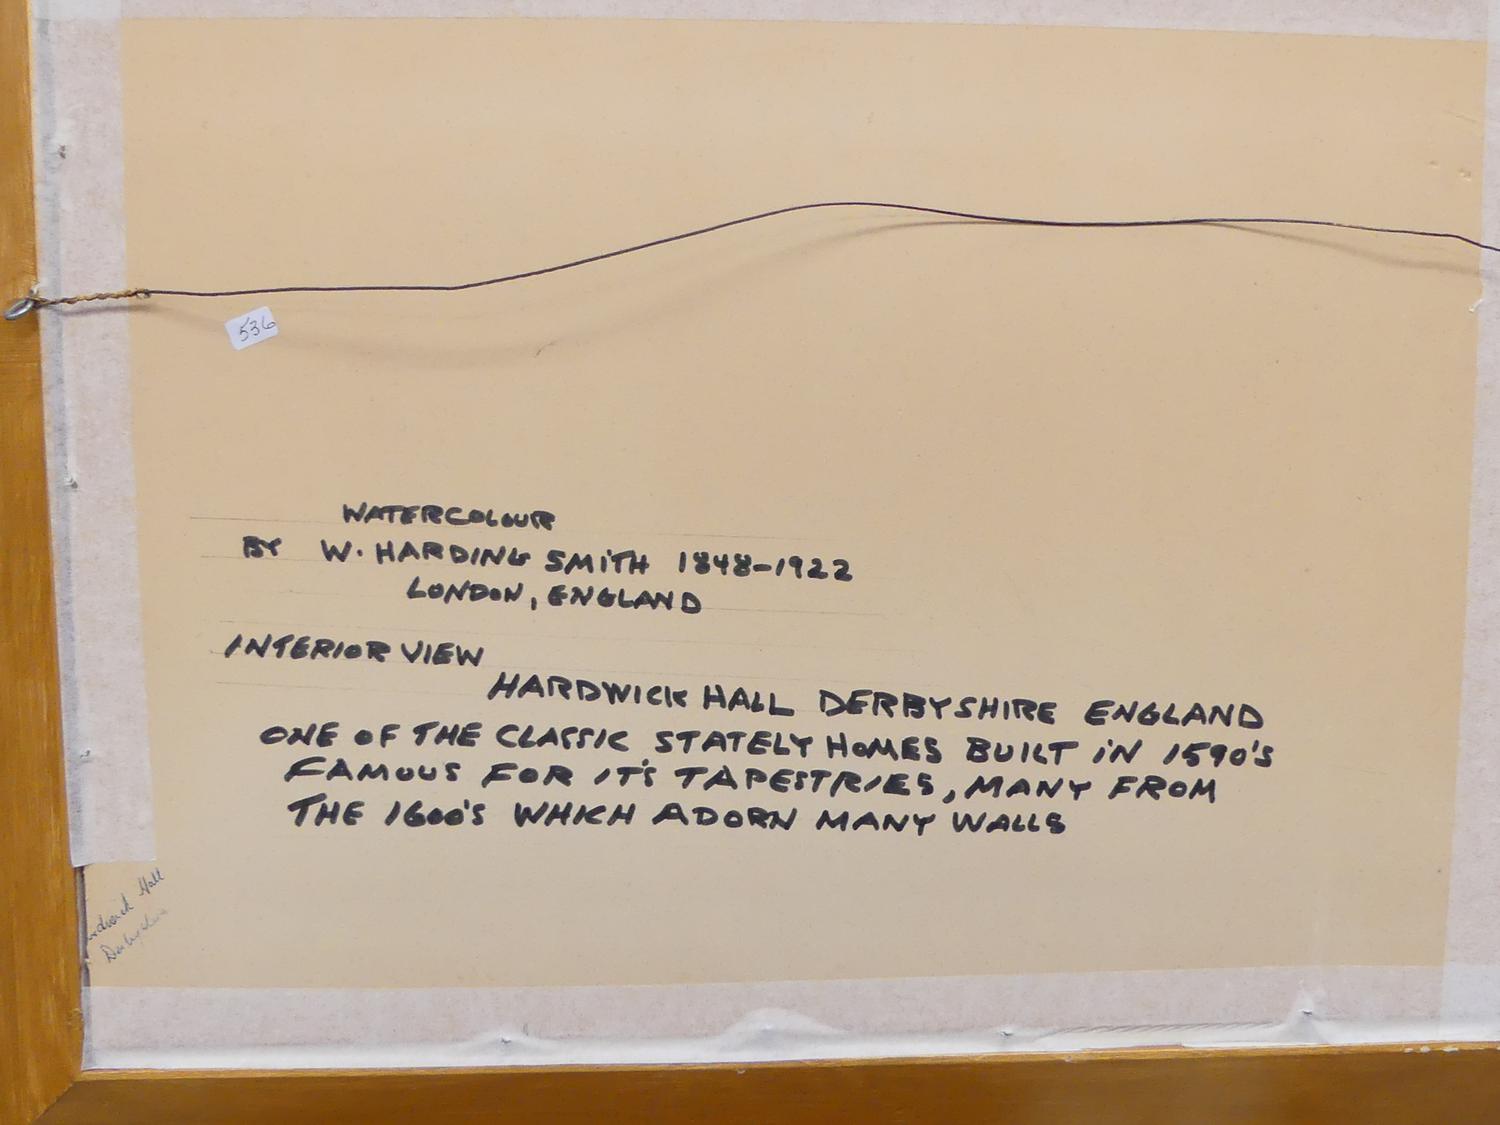 536
WATERCOLOUR
BY W. HARDING SMITH 1848-1922
LONDON, ENGLAND
INTERIOR VIEW
HARDWICK HALL DERBYSHIRE ENGLAND
ONE OF THE CLASSIC STATELY HOMES BUILT IN 1590'S
FAMOUS FOR IT'S TAPESTRIES, MANY FROM
THE 1600'S WHICH ADORN MANY WALLS
ardwick Hall
Derbyshire